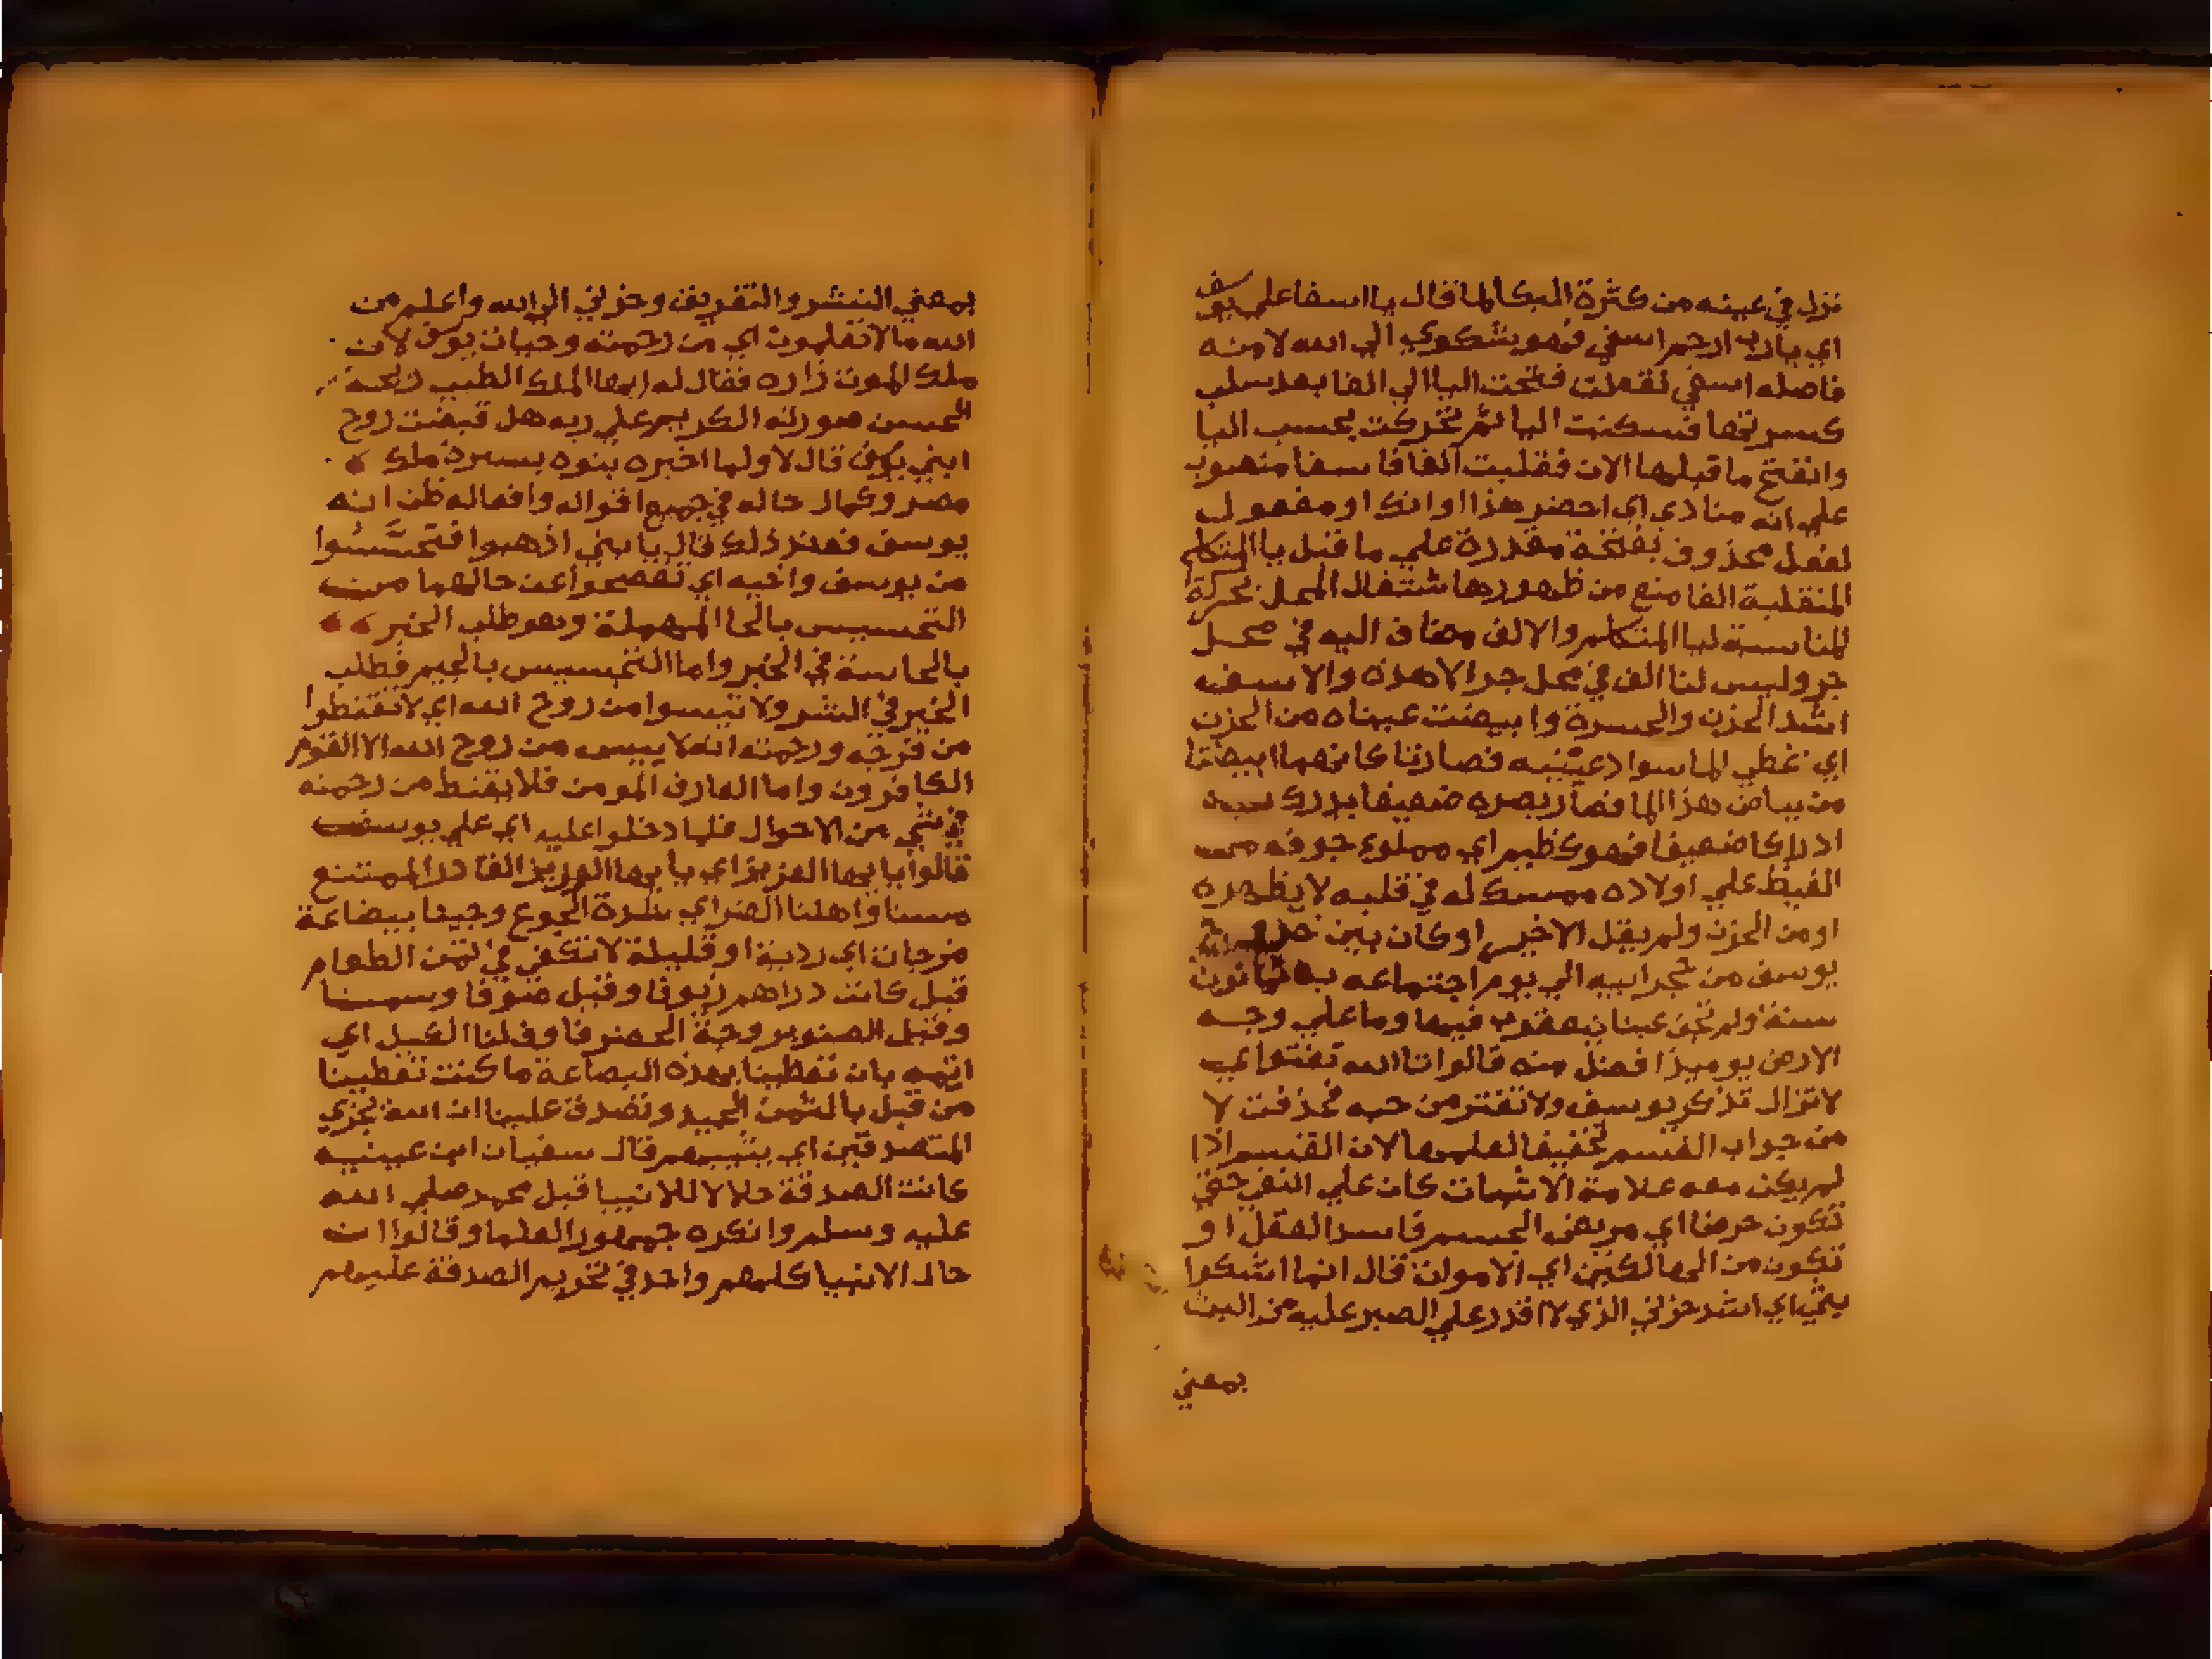 نزل في عينه من كثرة البكا لما قال يا اسفا على يوسف
اي يا رب ارحم اسفي فهو يشكوي الي الله لا منه
فاصله اسفي نقعلت فتحت اليا الي الفا بعد سلب
كسرتها فسكنت اليا ثم تحركت بحسب اليا
وانفتح ما قبلها الان فقلبت الفا فاسفا منصوب
علي انه منادي اي احضر هذا اوانك او مفعول
لفعل محذوف بفتحة مقدرة علي ما قبل يا المتكلم
المنقلبة الفا منع من ظهورها شتغال المحل بحركة
المناسبة ليا المتكلم والالف مضاف اليه في محل
جر وليس لنا الف في محل جر الا هذه والاسف
اشد الحزن والحسرة وابيضت عيناه من الحزن
اي غطي الما سواد عينيه فصارتا كانهما ابيضتا
من بياض هذا الما فصار بصره ضعيفا يدرك
ادراكا ضعيفا فهو كظيم اي مملوء جوفه من
الغيظ علي اولاده ممسك له في قلبه لا يظهره
او من الحزن ولم يقل الا خير او كان بين خروج
يوسف من حجر ابيه الي يوم اجتماعه به ثمانون
سنة ولم تجف عينا يعقوب فيها وما علي وجه
الارض يوميذ افضل منه قالوا تا الله تفتوا اي
لا تزال تذكر يوسف ولا تفتر من حبه فحذفت لا
من جواب القسم تخفيفا لعلمها لان القسم اذا
لم يكن معه علامة الاثبات كان علي النفي حتي
تكون حرضا اي مريض الجسم فاسد العقل او
تكون من الهالكين اي الاموات قال انما اشكوا
بثي اي اشد حزني الذي لا اقدر علي الصبر عليه من البث
بمعني
بمعني النشر والتفريق وحزني الي الله واعلم من
الله ما لا تعلمون اي من رحمته وحيات يوسف لان
ملك الموت زاره فقال له ايها الملك الطيب ريحه
الحسن صورته الكريم علي ربه هل قبضت روح
ابني يوسف قال لا ولما اخبره بنوه بسيرة ملك
مصر وكمال حاله في جميع اقواله وافعاله ظن انه
يوسف فعند ذلك قال يا بني اذهبوا فتحسسوا
من يوسف واخيه اي تفصحوا عن حالهما من
التحسيس بالحا المهملة وهو طلب الخبر
بالحاسة في الخير واما التجسيس بالجيم فطلب
الخبر في الشر ولا تيسوا من روح الله اي لا تقنطوا
من فرجه ورحمته انه لا ييس من روح الله الا القوم
الكافرون واما العارف المومن فلا يقنط من رحمته
في شي من الاحوال فلما دخلوا عليه اي علي يوسف
قالوا يا ايها العزيز اي يا ايها الوزير القادر الممتنع
مسنا واهلنا الضر اي شدة الجوع وجينا ببضاعة
مزجات اي ردية او قليلة لا تكفي في ثمن الطعام
قيل كانت دراهم زيوفا وقيل صوفا وسمنا
وقيل الصنوبر وحبة الخضرا فاوف لنا الكيل اي
اتمه بان تعطينا بهذه البضاعة ما كنت تعطينا
من قبل بالثمن الجيد وتصدق علينا ان الله يجزي
المتصدقين اي يثيبهم قال سفيان ابن عيينه
كانت الصدقة حلالا للانبيا قبل محمد صلي الله
عليه وسلم وانكره جمهور العلما وقالوا ان
حال الانبيا كلهم واحد في تحريم الصدقة عليهم